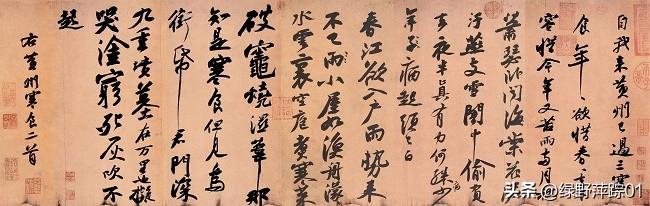 自我來黄州已過三寒
食年〻欲惜春春去不
容惜今年又苦雨兩月秋
蕭瑟卧聞海棠花泥
汙燕支雪闇中偷負
去夜半真有力何殊病少
年子病起頭已白
春江欲入户雨勢来
不已雨小屋如漁舟濛〻
水雲裏空庖煮寒菜
破竈燒濕葦那
知是寒食但見烏
銜帋君門深
九重墳墓在万里也擬
哭塗窮死灰吹不
起
右黄州寒食二首
头条 @绿野萍踪01